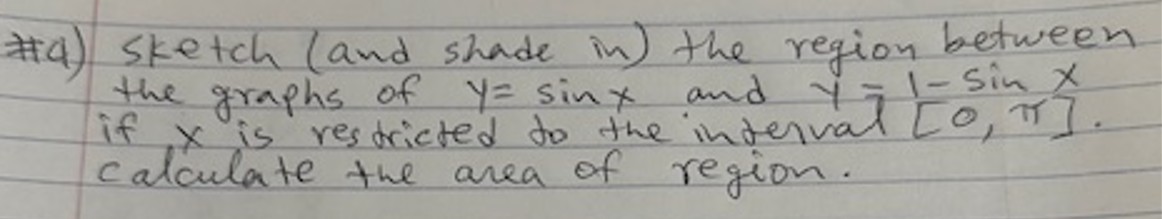 #9) sketch (and shade in) the region between
the graphs of y= sin x and y = 1- sin x
if x is restricted to the interval [0, π].
calculate the area of region.